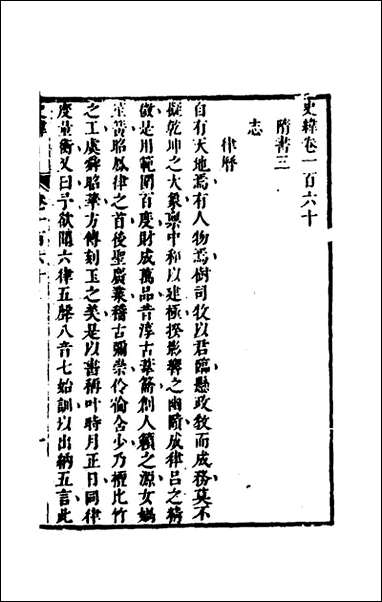 史緯卷一百六十
隋書三
志
律曆
自有天地焉有人物焉樹司牧以君臨懸政教而成務莫不
擬乾坤之大象稟中和以建極揆影響之幽賾成律呂之精
微是用範圍百度財成萬品昔淳古葦籥創人籟之源女媧
笙簧昭鳳律之首後聖廣業稽古彌崇伶倫含少乃擅比竹
之工虞舜昭華方傳刻玉之美是以書稱叶時月正日同律
度量衡又曰予欲聞六律五聲八音七始訓以出納五言此
卷一百六十